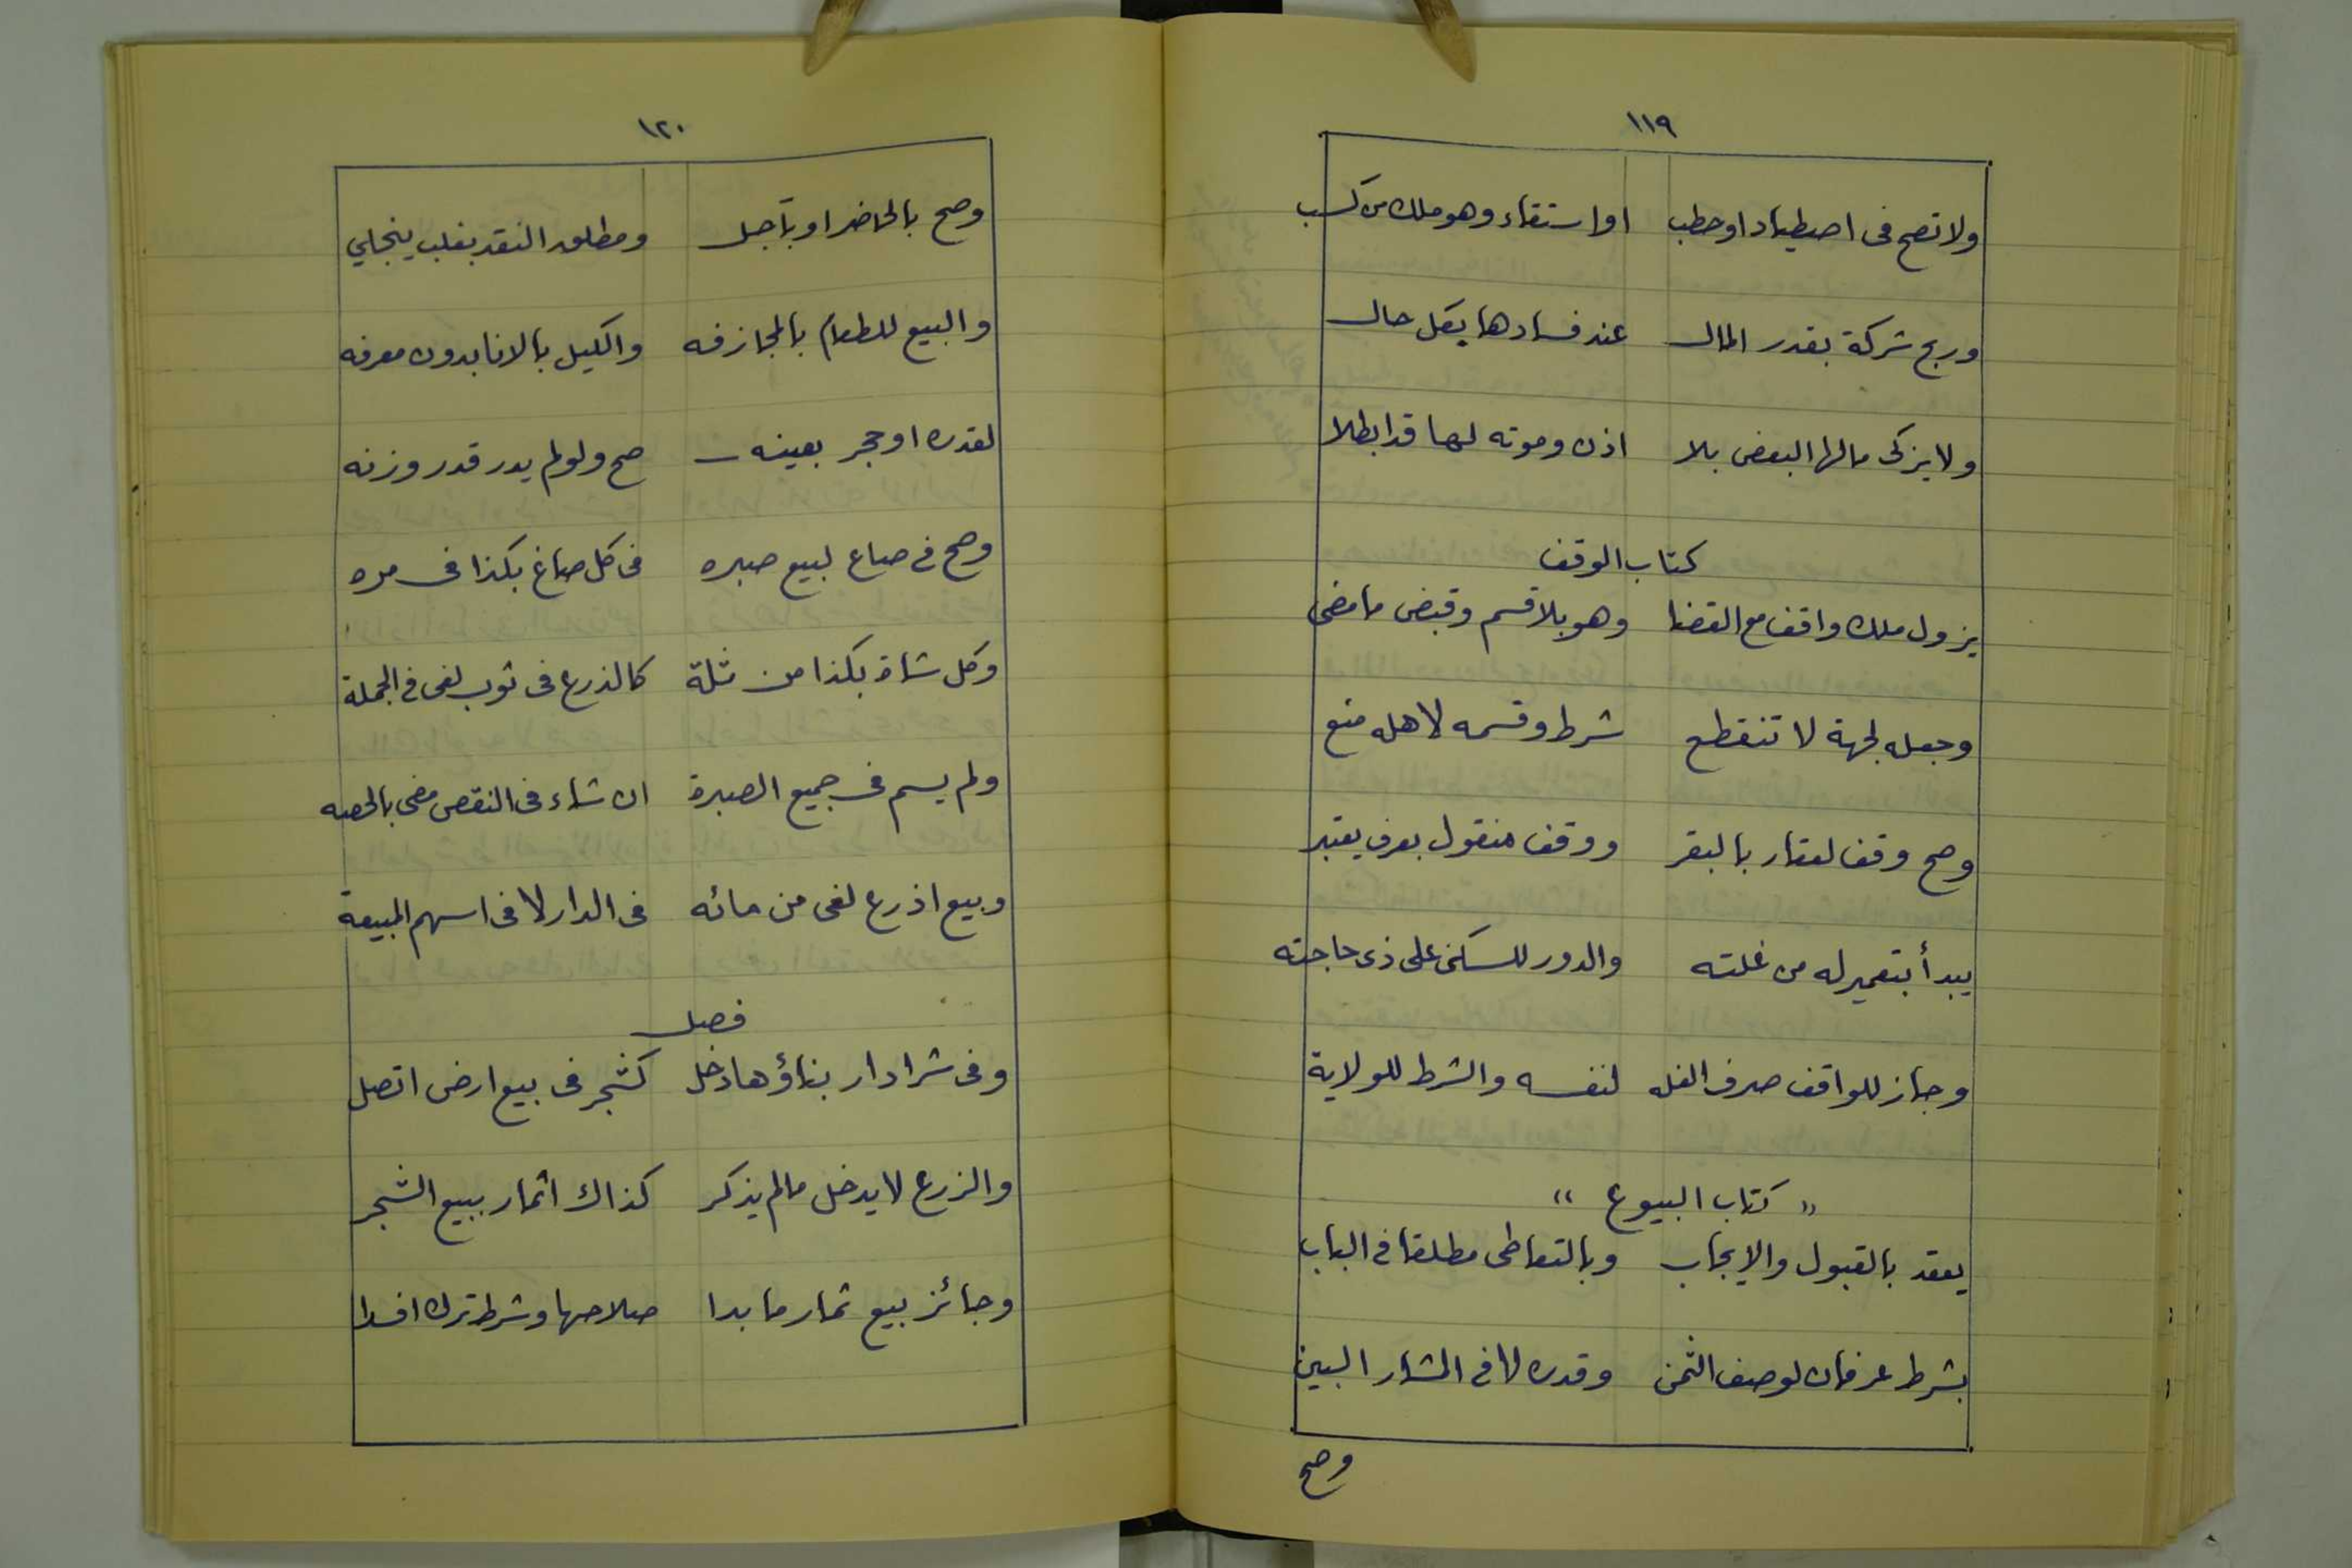 ١١٩
ولا تصح فى اصطياد او حطب اواستقاء وهو ملك من كسب
وربح شركة بقدر المال عند فسادها بكل حال
ولا يزكى مالها البعض بلا اذن وموته لها قد ابطلا
كتاب الوقف
يزول ملك واقف مع القضا وهو بلا قسم وقبض ما مضى
وجعله لجهة لا تنقطع شرط وقسمه لاهله منع
وصح وقف لعقار بالبقر ووقف منقول بعرف يعتبر
يبدأ بتعمير له من غلته والدور للسكنى على ذى حاجته
وجاز للواقف صرف الغله لنفسه والشرط للولاية
" كتاب البيوع "
يعقد بالقبول والإيجاب وبالتعاطى مطلقا فى الباب
بشرط عرفان لوصف الثمن وقدره لا فى المشار البين
وصح
١٢٠
وصح بالحاضر او بآجل ومطلق النقد بغلب ينجلي
والبيع للطعام بالمجازفه والكيل بالانا بدون معرفه
لقدره او حجر بعينه صح ولو لم يدر قدر وزنه
وصح فى صاع لبيع صبره فى كل صاغ بكذا فى مره
وكل شاة بكذا من ثلة كالذرع فى ثوب لغى فى الجملة
ولم يسم فى جميع الصبرة ان شاء فى النقص مضى بالحصه
وبيع اذرع لغى من مائه فى الدار لا فى اسهم المبيعة
فصل
وفى شرا دار بناؤها دخل كشجر فى بيع ارض اتصل
والزرع لا يدخل مالم يذكر كذاك اثمار ببيع الشجر
وجائز بيع ثمار ما بدا صلاحها وشرط ترك افسدا